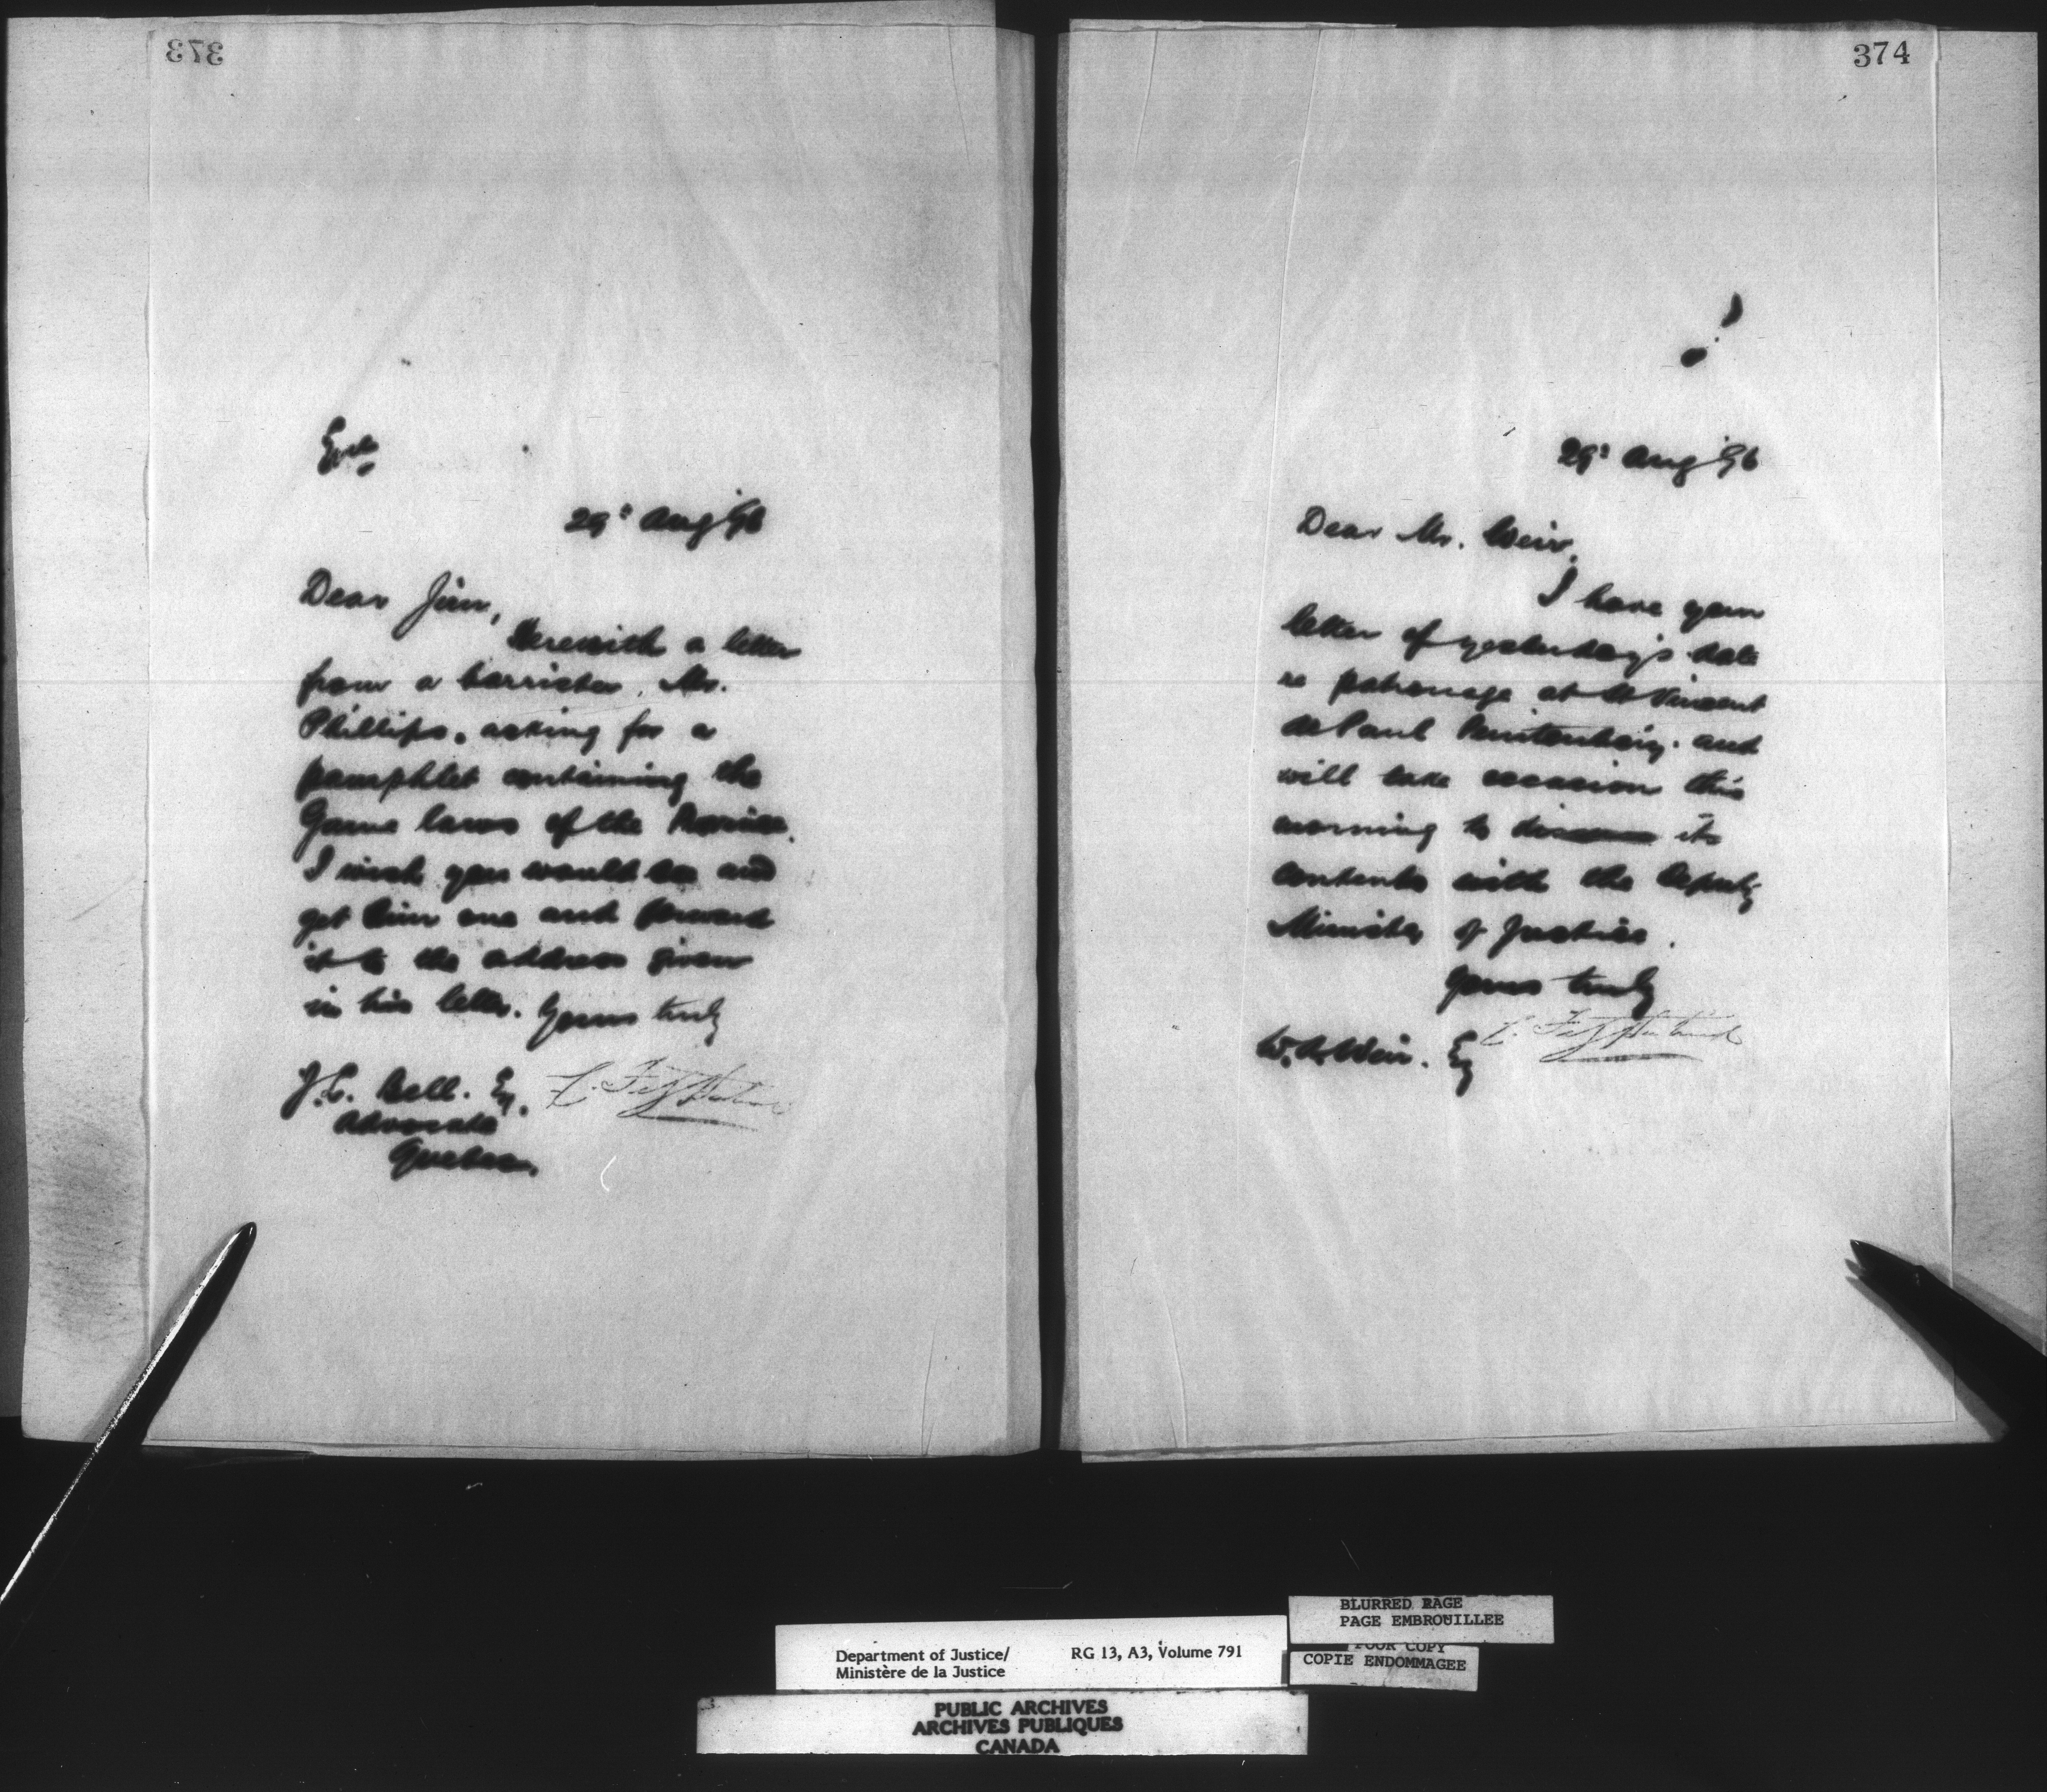 373
29th Aug '96
Dear Jim,
Herewith a letter
from a barrister, Mr.
Phillips, asking for a
pamphlet containing the
Game laws of the Province.
I wish you would see and
get him one and forward
it to the address given
in his letter. Yours truly
C. Fitzpatrick
J.C. Bell. Esq.
Advocate
Quebec.
374
29th Aug '96
Dear Mr. Weir,
I have your
letter of yesterday's date
re patronage at St Vincent
de Paul Penitentiary. and
will take occasion this
morning to discuss its
contents with the Deputy
Minister of Justice.
Yours truly
C. Fitzpatrick
W.A. Weir. Esq
Department of Justice/
Ministère de la Justice
RG 13, A3, Volume 791
BLURRED PAGE
PAGE EMBROUILLEE
POOR COPY
COPIE ENDOMMAGEE
PUBLIC ARCHIVES
ARCHIVES PUBLIQUES
CANADA